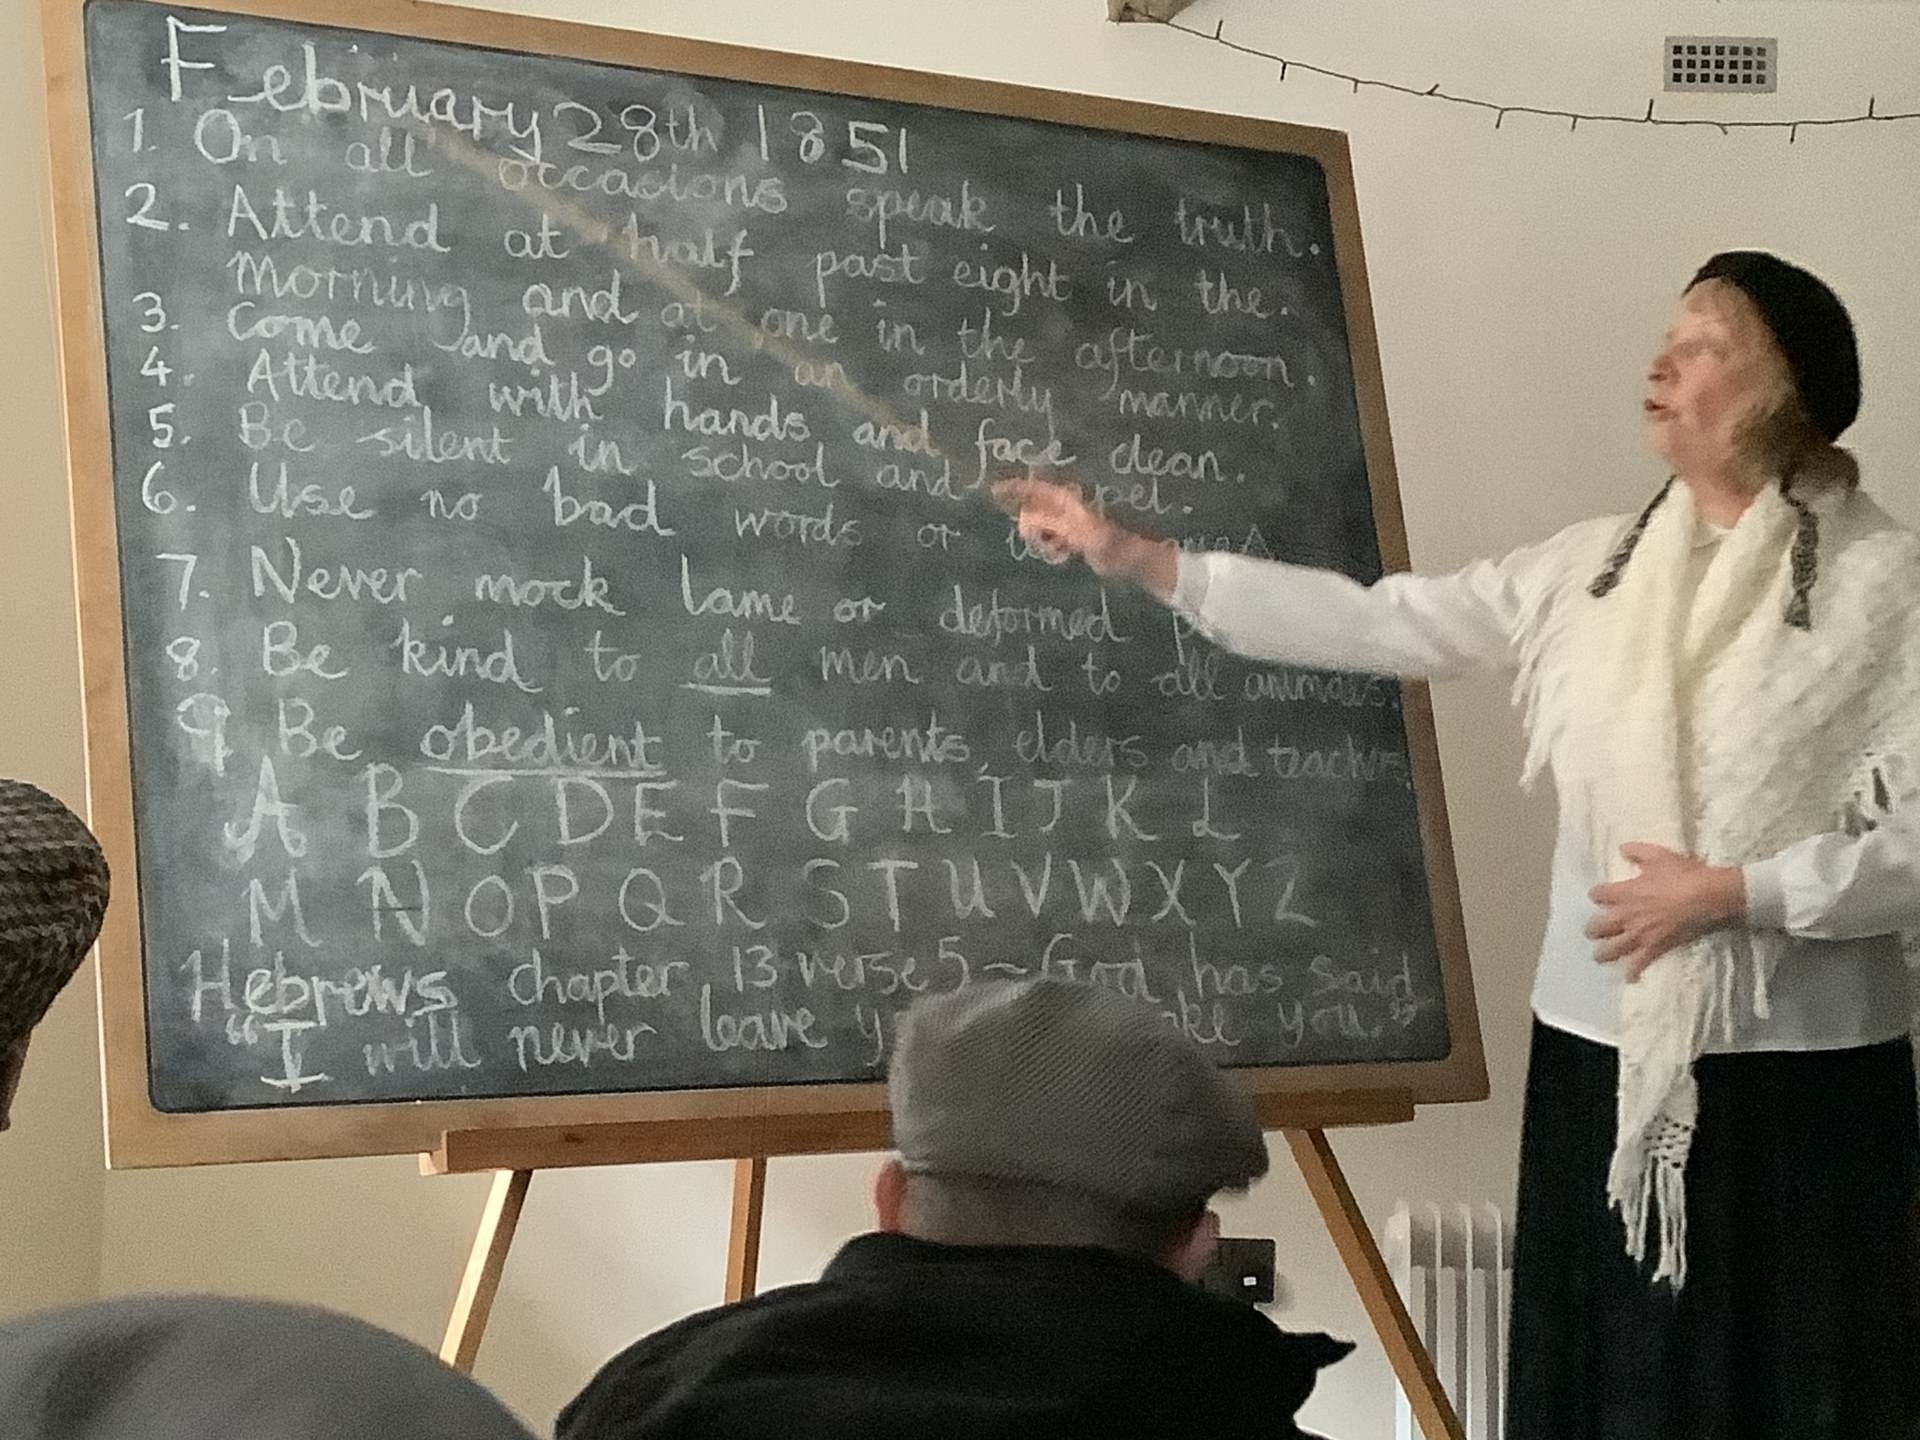 February 28th 1851
1. On all occasions speak the truth.
2. Attend at half past eight in the.
morning and at one in the afternoon.
3. Come and go in an orderly manner.
4. Attend with hands and face clean.
5. Be silent in school and
6. Use no bad words or
7. Never mock lame or deformed
8. Be kind to all men and to all animals.
9 Be obedient to parents, elders and teachers.
A B C D E F G H I J K L
M N O P Q R S T U V W X Y Z
Hebrews chapter 13 verse 5 ~ God has said
"I will never leave you."